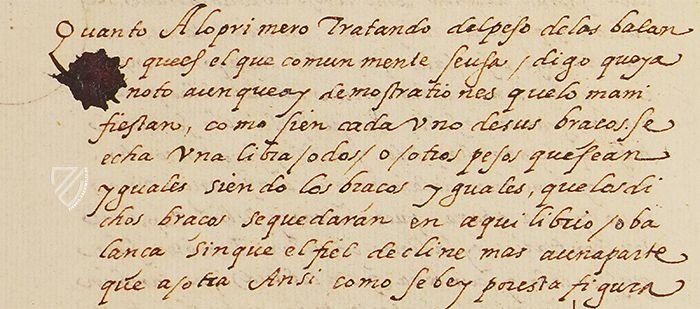 Quanto Alo primero Tratando del peso delas balan
s que es el que comun mente se usa / digo que ya
noto aunque ay demostrationes que lo mani
fiestan, como si en cada uno de sus bracos se
echa Una libra / o dos / o / otros pesos que sean
yguales siendo los bracos yguales, que los di
chos bracos se quedarán en equilibrio / o ba
lanca sin que el fiel decline mas a una parte
que a / otra Ansi como se be y por esta figura